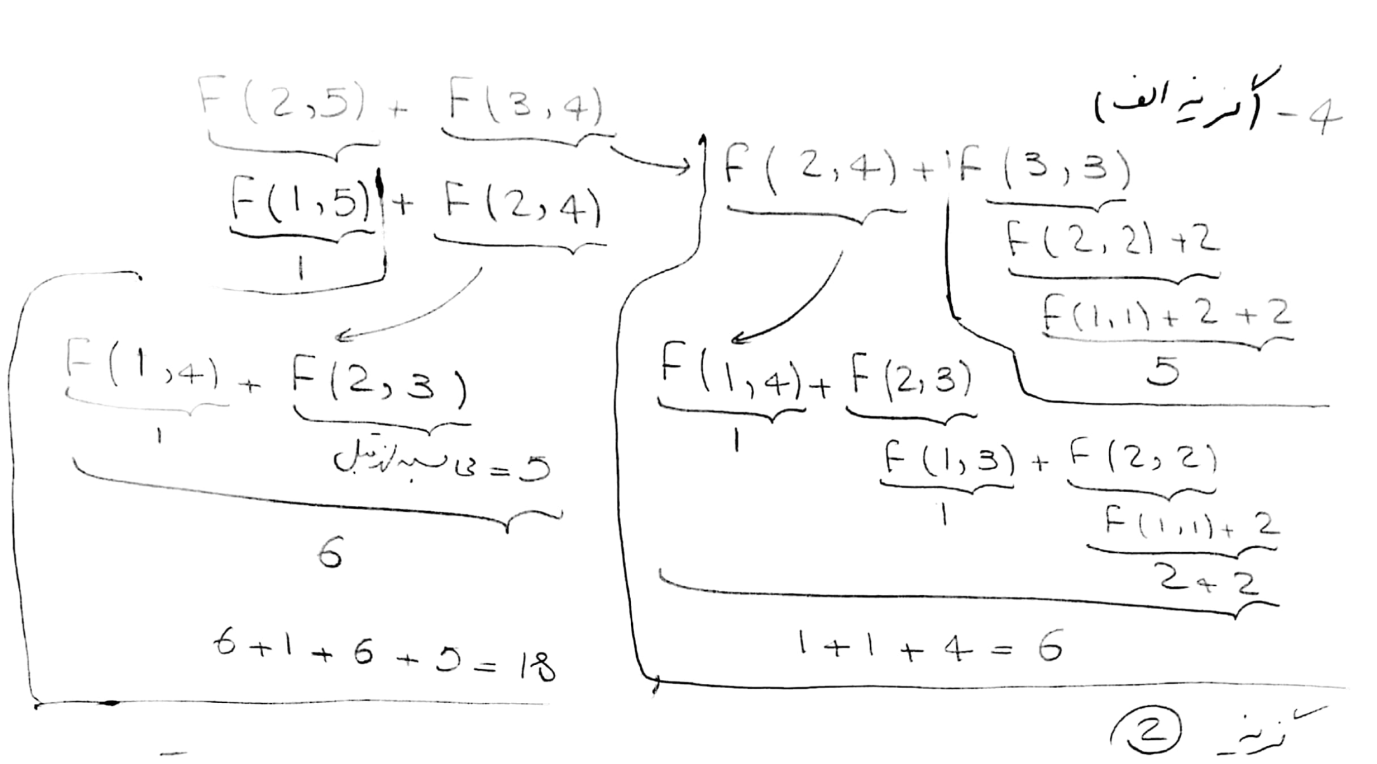 4 - (گزینه الف)
F(2,5) + F(3,4)
F(1,5) + F(2,4)
1
F(1,4) + F(2,3)
1
محاسبه از قبل = 5
6
6 + 1 + 6 + 5 = 18
F(2,4) + F(3,3)
F(2,2) + 2
F(1,1) + 2 + 2
5
F(1,4) + F(2,3)
1
F(1,3) + F(2,2)
1
F(1,1) + 2
2 + 2
1 + 1 + 4 = 6
گزینه 2